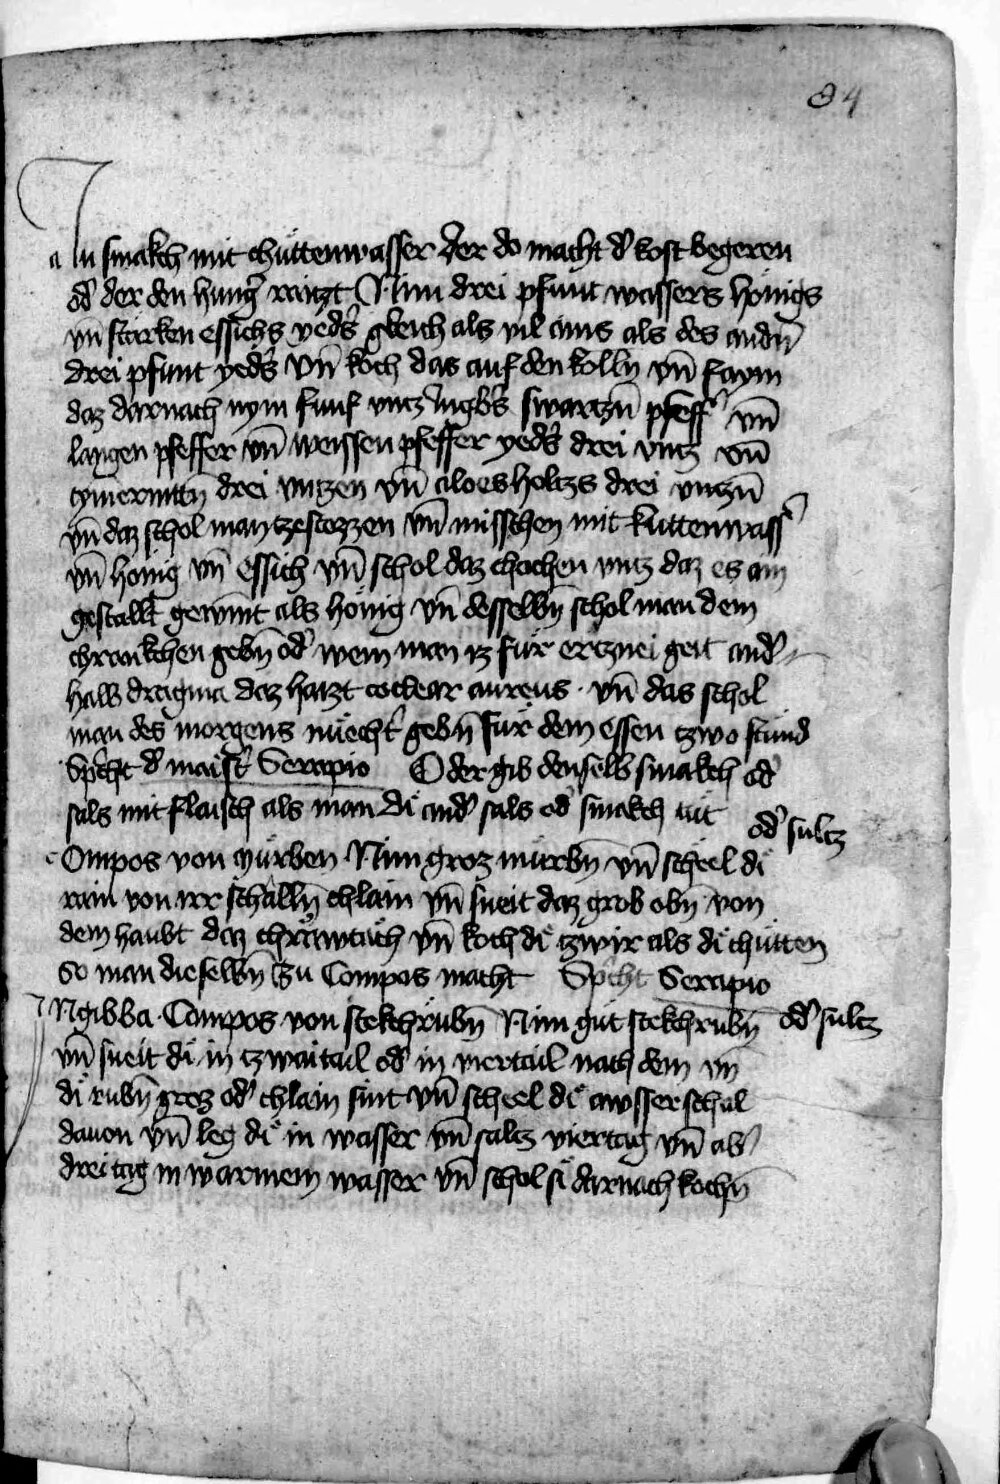 84
a In smakch mit chuttenwasser der do macht d' kost begeren
od' der den hung' raitzt Nim drei pfunt wassers honigs
vn̄ starken essichs yed's gleich als vil ains als des andn̄
drei pfunt yed's vn̄ koch das auf den kolln vn̄ faym
daz darnach nym funf vntz ingb's swartzn̄ pfeff' vn̄
langen pfeffer vn̄ weissen pfeffer yed's drei vntz vn̄
cymermittn̄ drei vntzen vn̄ aloesholtzs drei vntzn̄
vn̄ daz schol man tzestozzen vn̄ misschen mit kuttenwass'
vn̄ honig vn̄ essich vn̄ schol daz chochen vntz daz es ain
gestallt gewint als honig vn̄ desselbn̄ schol man dem
chrankchen gebn̄ od' wem man iz fur ertznei geit and'
halb dragma daz haizt coclear aureus · vn̄ das schol
man des morgens nuecht' gebn̄ fur dem essen tzwo stund
Sp'cht d' maist' Serapio Oder gib denselb smakch od'
sals mit flaisch als man di and' sals od' smakch tut
od' sultz
c Ompos von murben Nim groz murbn̄ vn̄ scheel di
rain von irr schalln̄ chlain vn̄ sneit daz grob obn̄ von
dem haubt daz chrawtach vn̄ koch di tzwir als di chutten
So man dieselbn̄ tzu Compos macht Sp'cht Serapio
INgibba · Compos von stekchrubn̄ Nim gut stekchrubn̄ od' sultz
vn̄ sneit di in tzwaitail od' in viertail nach dem vn̄
di rubn̄ groz od' chlain sint vn̄ scheel di awsserschal
dauon vn̄ leg di in wasser vn̄ saltz viertag vn̄ ab'
drei tag in warmem wasser vn̄ schol si darnach kochn̄